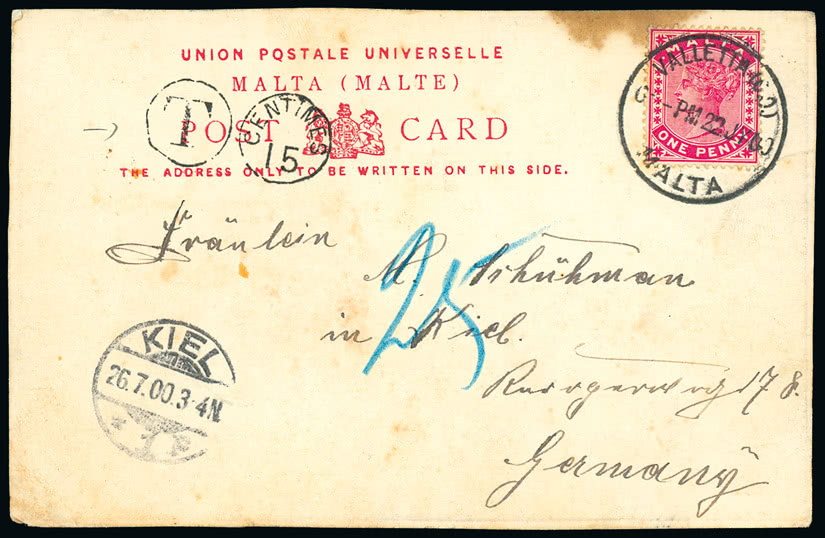 UNION POSTALE UNIVERSELLE
MALTA (MALTE)
POST CARD
THE ADDRESS ONLY TO BE WRITTEN ON THIS SIDE.
T
CENTIMES
15
MALTA
ONE PENNY
VALLETTA
PM 22 00
MALTA
Fräulein
M. Schühman
in Kiel.
25
17
Germany
KIEL
26.7.00.3-4N.
* 1 *